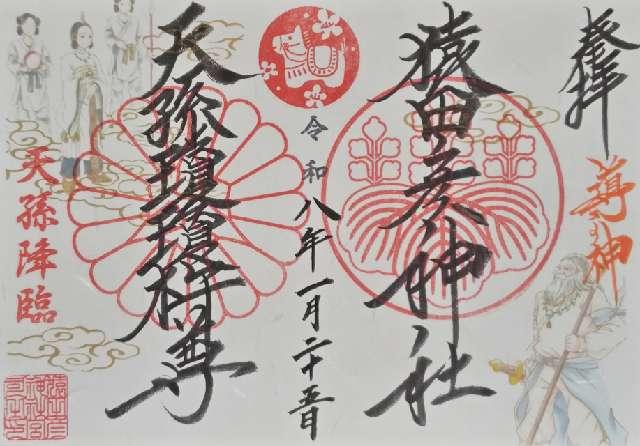 奉拝
導きの神
猿田彦神社
令和八年一月二十五日
天孫瓊瓊杵尊
天孫降臨